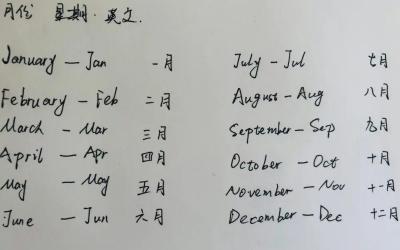 月份 星期. 英文.
January — Jan 一月
February — Feb 二月
March — Mar 三月
April — Apr 四月
May — May 五月
June — Jun 六月
July — Jul 七月
August — Aug 八月
September — Sep 九月
October — Oct 十月
November — Nov 十一月
December — Dec 十二月